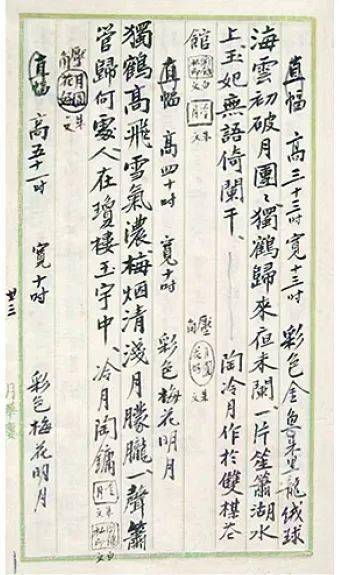 直幅 高三十三吋 寬十三吋 彩色金魚墨龍絨球
海雲初破月團ミ獨鶴歸來夜未闌、一片笙簫湖水
上、玉妃無語倚闌干、 陶冷月作於雙棋
館
壓角
朱文
直幅 高四十吋 寬十吋 彩色梅花明月
獨鶴高飛雪氣濃梅烟清淺月朦朧、一聲簫
管歸何處、人在瓊樓玉宇中、冷月陶鏞
壓角 月圓花好 朱文
直幅 高五十二吋 寬十吋 彩色梅花明月
廿三
月華廔